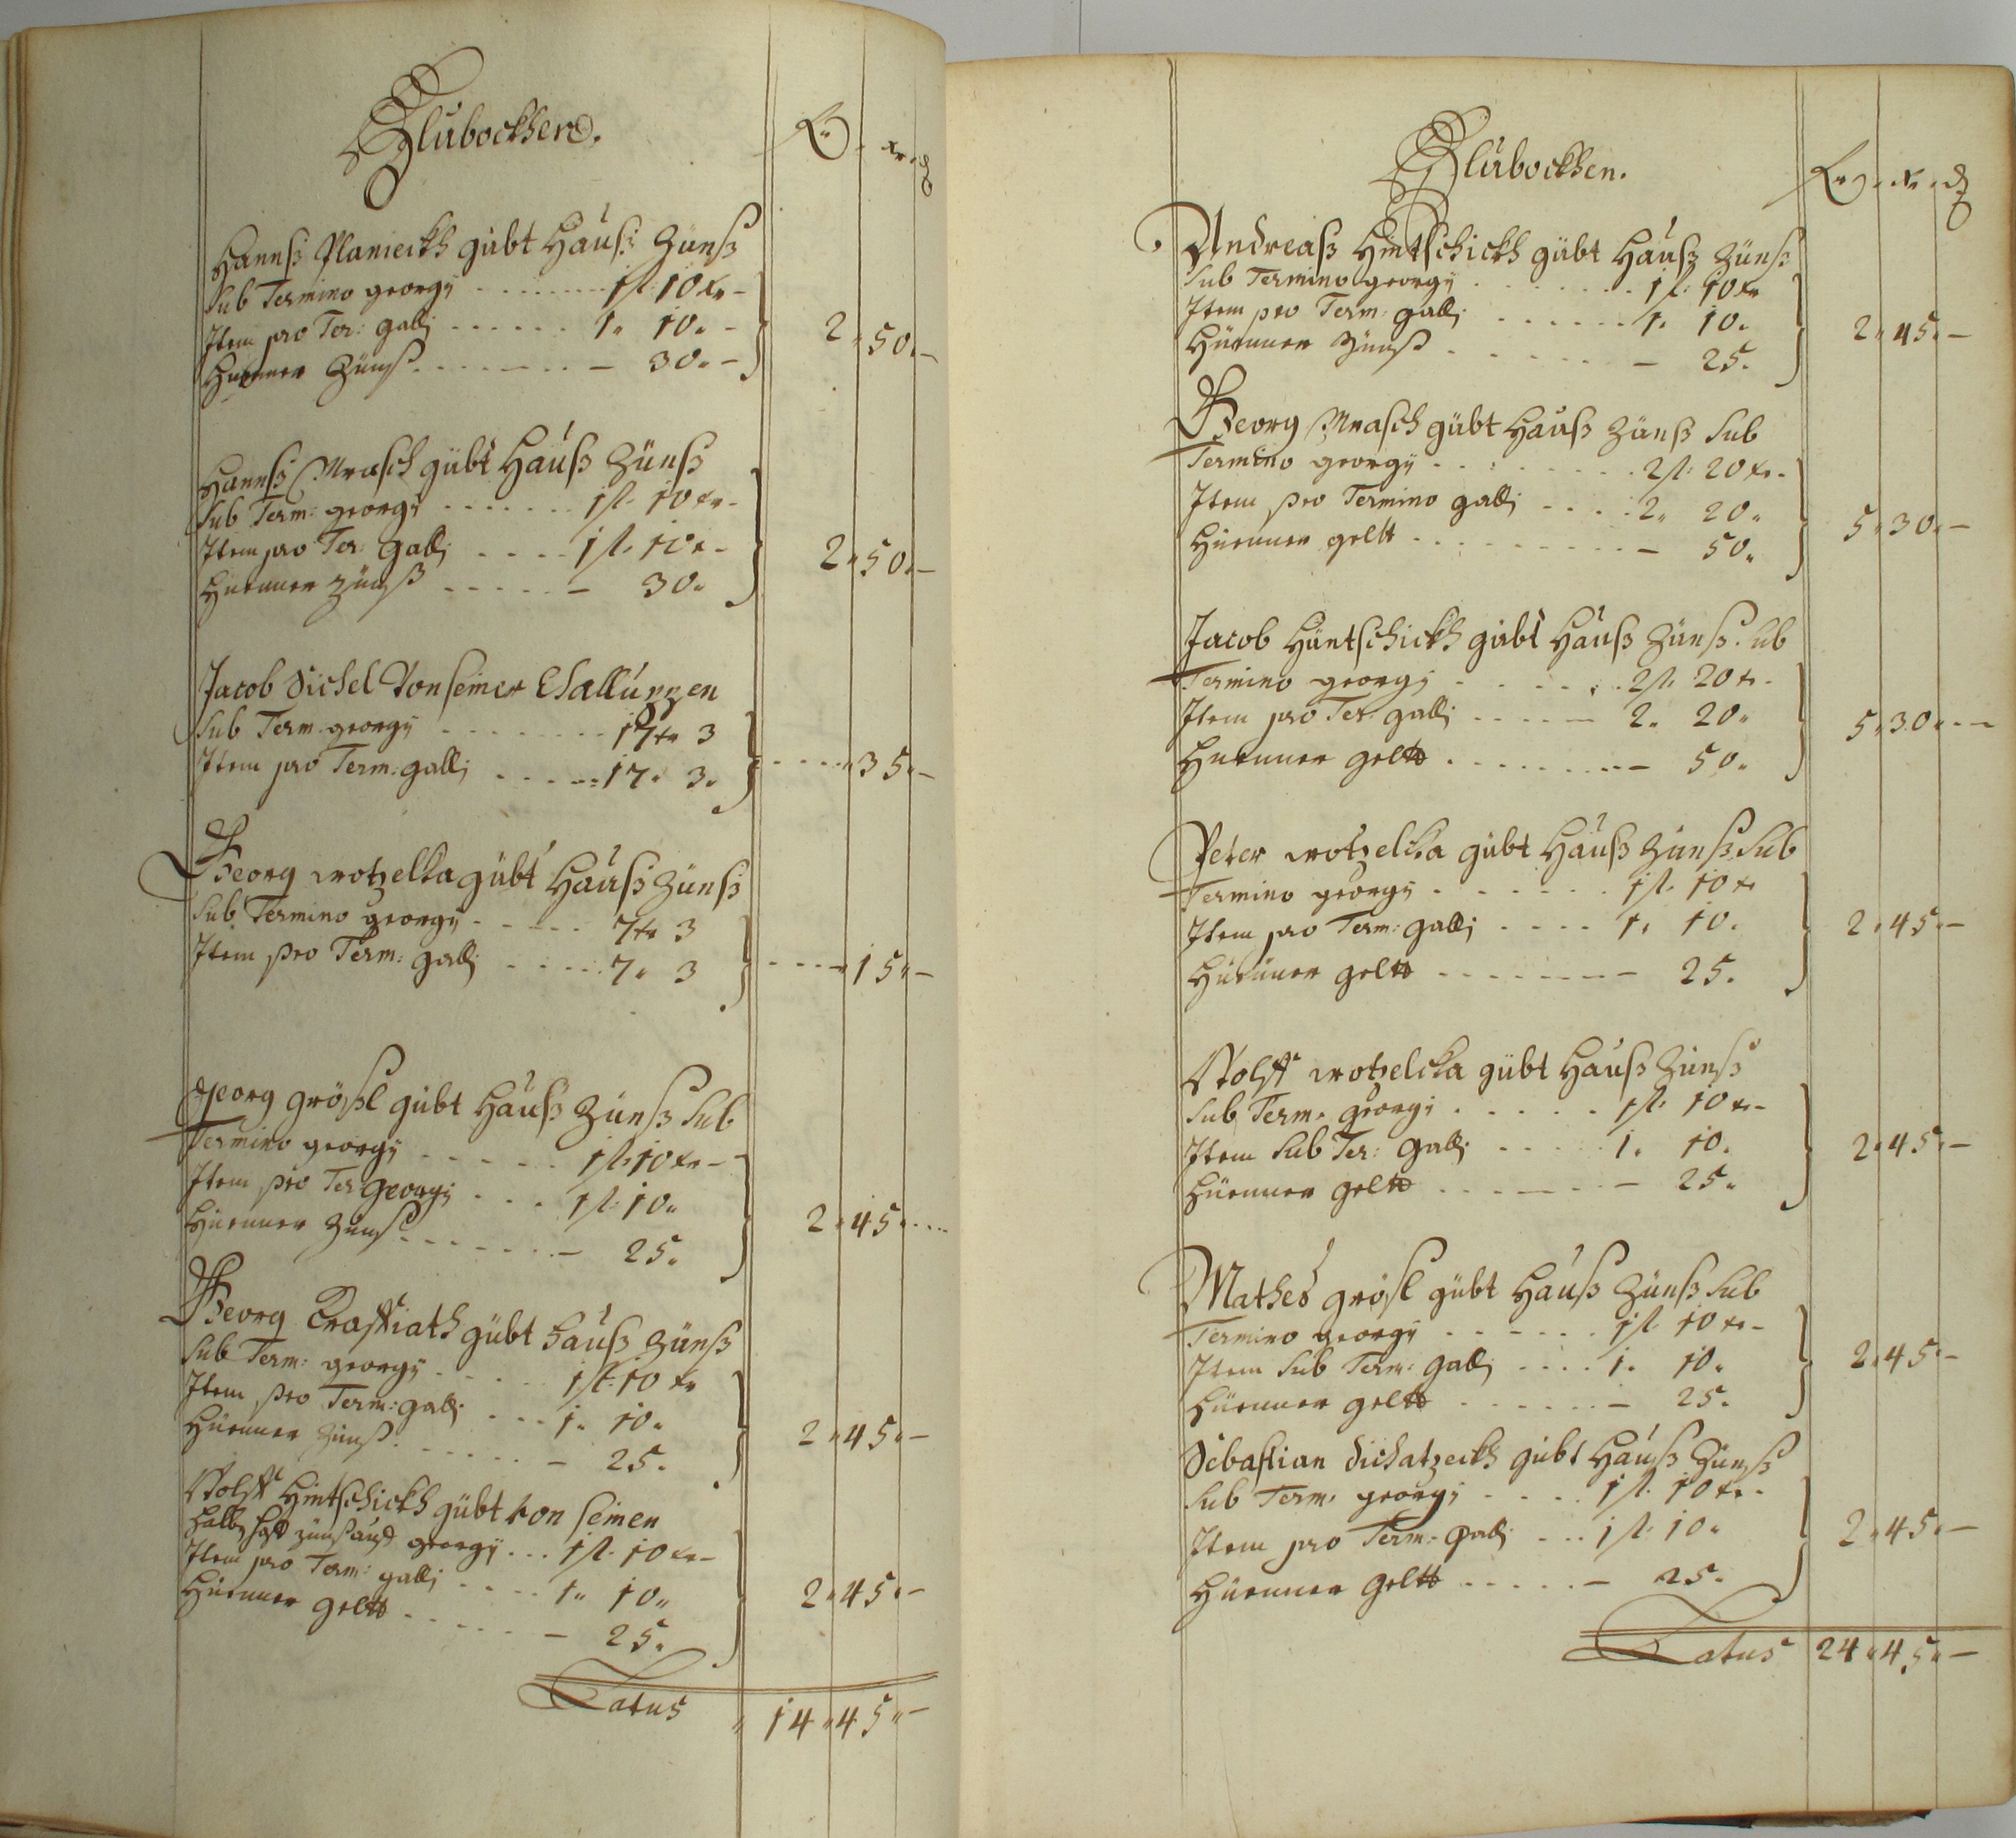 Glubockhen.
fl. xr. d
Hannß Planieckh gübt Hauß Zünß
Sub Termino georgy - - - 1 fl. 10 xr -
Item pro Ter: galli - - - 1. 10. -
Huenner Zünß - - - - 30. -
2. 50. -
Hannß Mrasch gübt Hauß Zünß
Sub Term: georgy - - - 1 fl. 10 xr -
Item pro Ter: galli - - - 1 fl. 10 x -
Huenner Zünß - - - - 30.
2. 50. -
Jacob Sichel Von seiner Challuppen
Sub Term georgy - - - 17 xr 3
Item pro Term: galli - - - 17. 3.
- - - 35. -
Georg wotzelka gübt Hauß Zünß
Sub Termino georgy - - - 7 xr 3
Item pro Term: galli - - - 7. 3
- - - 15. -
Georg größl gübt Hauß Zünß Sub
Termino georgy - - - 1 fl. 10 xr -
Item pro Ter georgy - - - 1 fl. 10.
Huenner Zünß - - - - 25.
2. 45. - -
Georg gübt Hauß Zünß
Sub Term: georgy - - - 1 fl. 10 xr
Item pro Term: galli - - - 1. 10.
Huenner Zünß - - - - 25.
2. 45. -
Wolff Hintschickh gübt von seinen
halb zünß georgy - - - 1 fl. 10 xr -
Item pro Term: galli - - - 1. 10.
Huenner geltt - - - - 25.
2. 45. -
Latus 14. 45. -
Glubockhen.
fl. xr. d
Andreaß Hintschickh gübt Hauß Zünß
Sub Termino georgy - - - 1 fl. 10 xr
Item pro Term: galli - - - 1. 10.
Huenner Zünß - - - - 25.
2. 45. -
Georg Mrasch gübt Hauß Zünß Sub
Termino georgy - - - 2 fl. 20 xr -
Item pro Termino galli - - - 2. 20.
Huenner geltt - - - - 50.
5. 30. -
Jacob Hüntschickh gübt Hauß Zünß Sub
Termino georgy - - - 2 fl. 20 x -
Item pro Ter galli - - - 2. 20.
Huenner geltt - - - - 50.
5. 30. - -
Peter wotzelcka gübt Hauß Zünß Sub
Termino georgy - - - 1 fl. 10 x
Item pro Term: galli - - - 1. 10.
Huenner geltt - - - - 25.
2. 45. -
Wolff wotzelcka gübt Hauß Zünß
Sub Term. georgi - - - 1 fl. 10 xr -
Item Sub Ter: galli - - - 1. 10.
Huenner geltt - - - - 25.
2. 45. -
Mathes grösl gübt Hauß Zünß Sub
Termino georgy - - - 1 fl. 10 xr -
Item Sub Term: galli - - - 1. 10.
Huenner geltt - - - - 25.
2. 45. -
Sebastian Sichatzeckh gübt Hauß Zünß
Sub Term. georgy - - - 1 fl. 10 xr -
Item pro Term: galli - - - 1 fl. 10.
Huenner geltt - - - - 25.
2. 45. -
Latus 24. 45. -